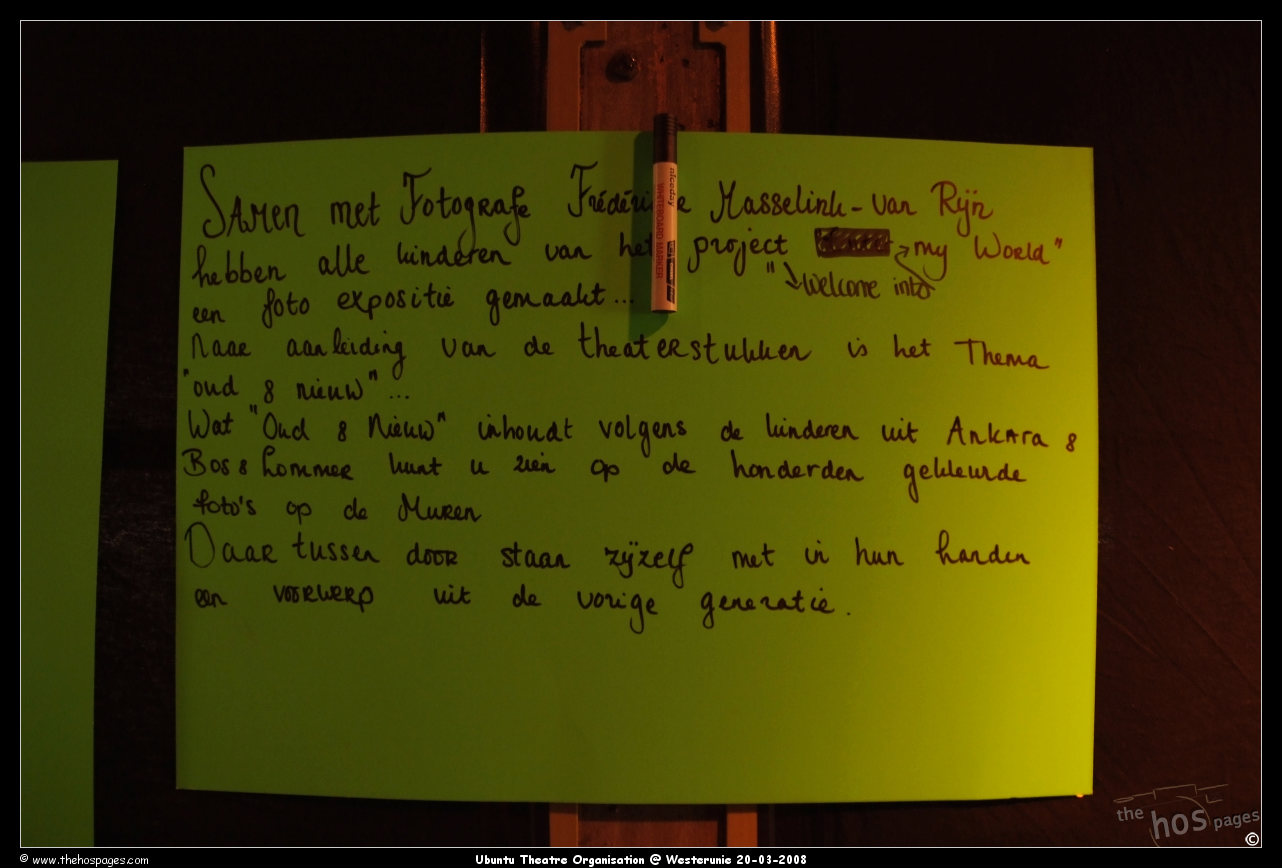 Samen met Fotografe Frédérique Masselink-van Rijn
hebben alle kinderen van het project my World"
"Welcome into
een foto expositie gemaakt...
Naar aanleiding van de theaterstukken is het Thema
"oud & nieuw"...
Wat "Oud & Nieuw" inhoudt volgens de kinderen uit Ankara &
Bos & Lommer kunt u zien op de honderden gekleurde
foto's op de Muren
Daar tussen door staan zijzelf met in hun handen
een voorwerp uit de vorige generatie.
niceday
WHITEBOARD MARKER
the hos pages
©
© www.thehospages.com
Ubuntu Theatre Organisation @ Westerunie 20-03-2008